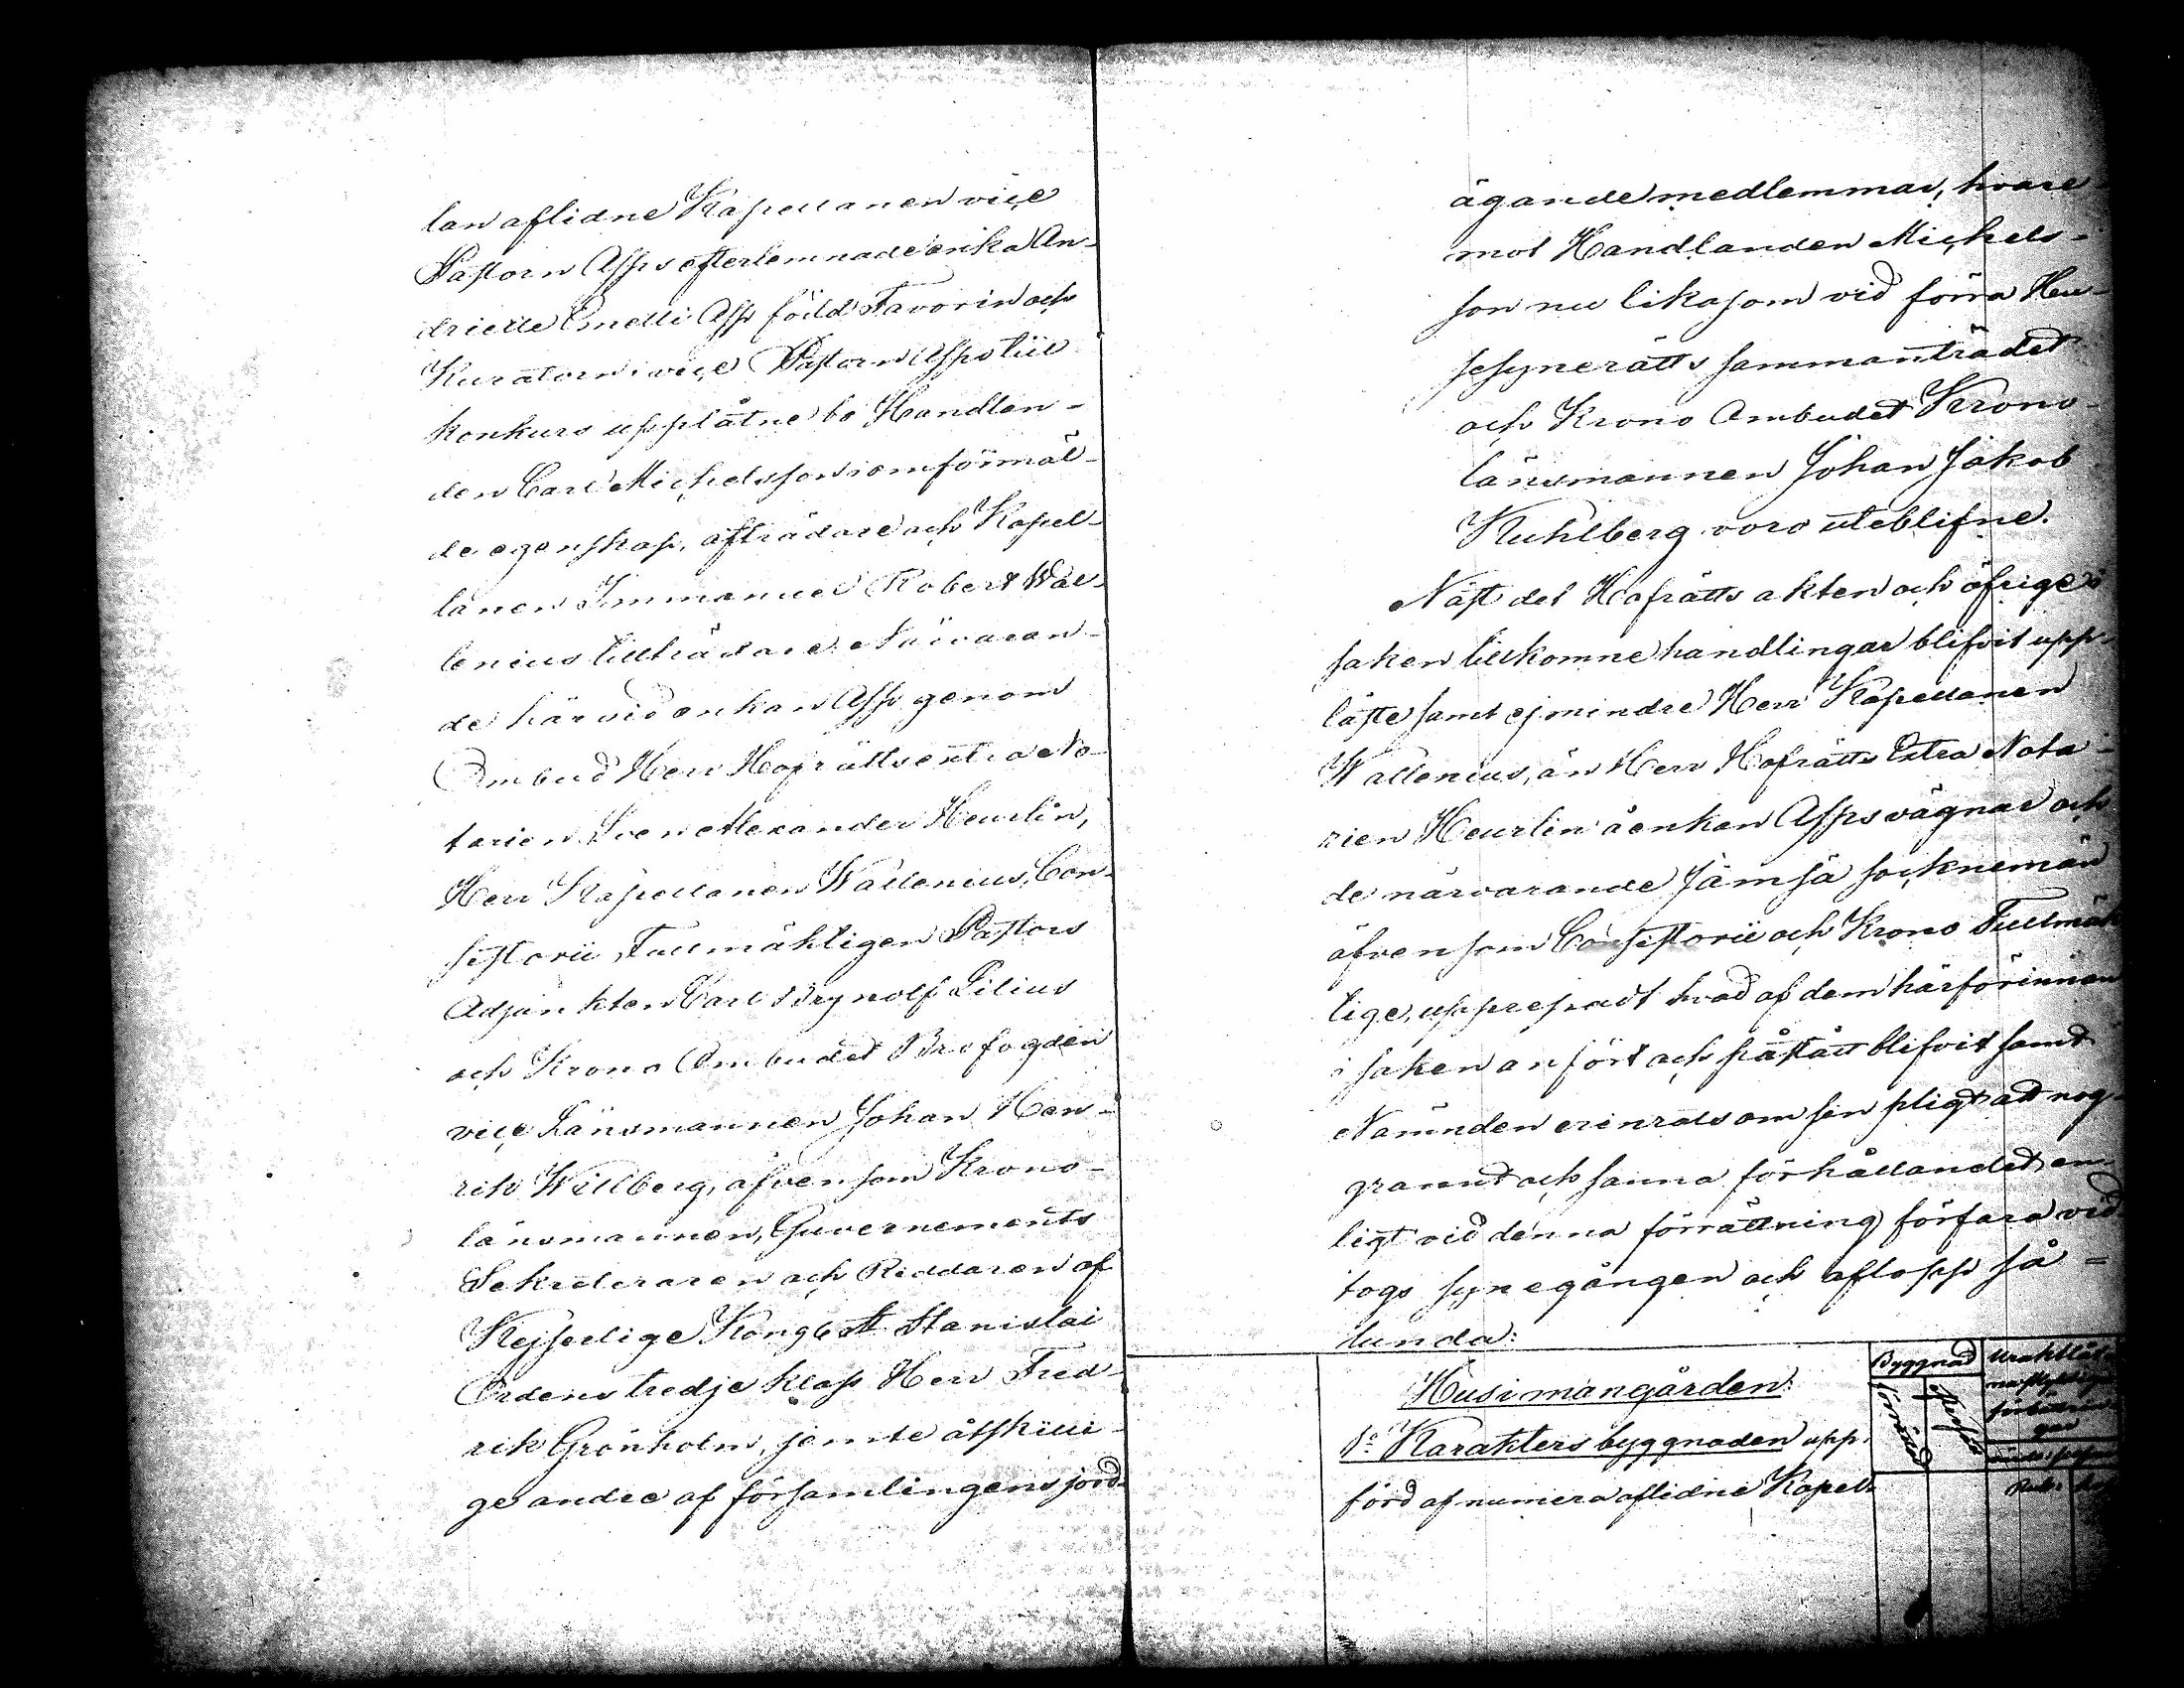 lan aflidne Kapellanen vice
Pastorn Asps efterlemnade enka An-
driette Emelli Asp född Favorin och
Kuratorn i vice Pastorn Asps till
konkurs upplåtne bo Handlan-
den Carl Michelsson i omförmäl-
de egenskap, afträdare och Kapel-
lanen Immanuel Robert Wal-
lenius tillträdare. Närvaran-
de härvid enkan Asp genom
Ombud Herr Hofrätts extra No-
tarien Sven Alexander Heurlin,
Herr Kapellanen Wallenius, Con-
sistorii Fullmäktigen Pastors
Adjunkten Carl Brynolf Lilius
och Krono Ombudet Brofogden
vice Länsmannen Johan Hen-
rik Willberg, äfvensom Krono-
länsmannen, Guvernements
Sekreteraren och Riddaren af
Kejserlige Kongl. St Stanislai
Ordens tredje klass Herr Fred-
rik Grönholm, jemte åtskilli-
ge andre af församlingens jord-
ägande medlemmar, hvare-
mot Handlanden Michels-
son nu likasom vid förra Hu-
sesynerätts sammanträdet
och Krono Ombudet Krono-
länsmannen Johan Jakob
Kuhlberg voro uteblifne.
Näst det Hofrätts akten och öfrige i
saken tillkomne handlingar blifvit upp-
läste samt ej mindre Herr Kapellanen
Wallenius, än Herr Hofrätts Extra Nota-
rien Heurlin å enkan Asps vägnar och
de närvarande Jämsä socknemän
äfvensom Consistorii och Krono Fullmäk
tige, upprepadt hvad af dem härförinnan
i saken anfört och påstått blifvit samt
Nämnden erinrats om sin pligt att nog-
grannt och sanna förhållandet en-
ligt vid denna förrättning förfara vid
togs synegången och aflopp så=
lunda:
Byggnad
Hus i mangården:
1o Karakters byggnaden upp-
förd af numera aflidne Kapel-